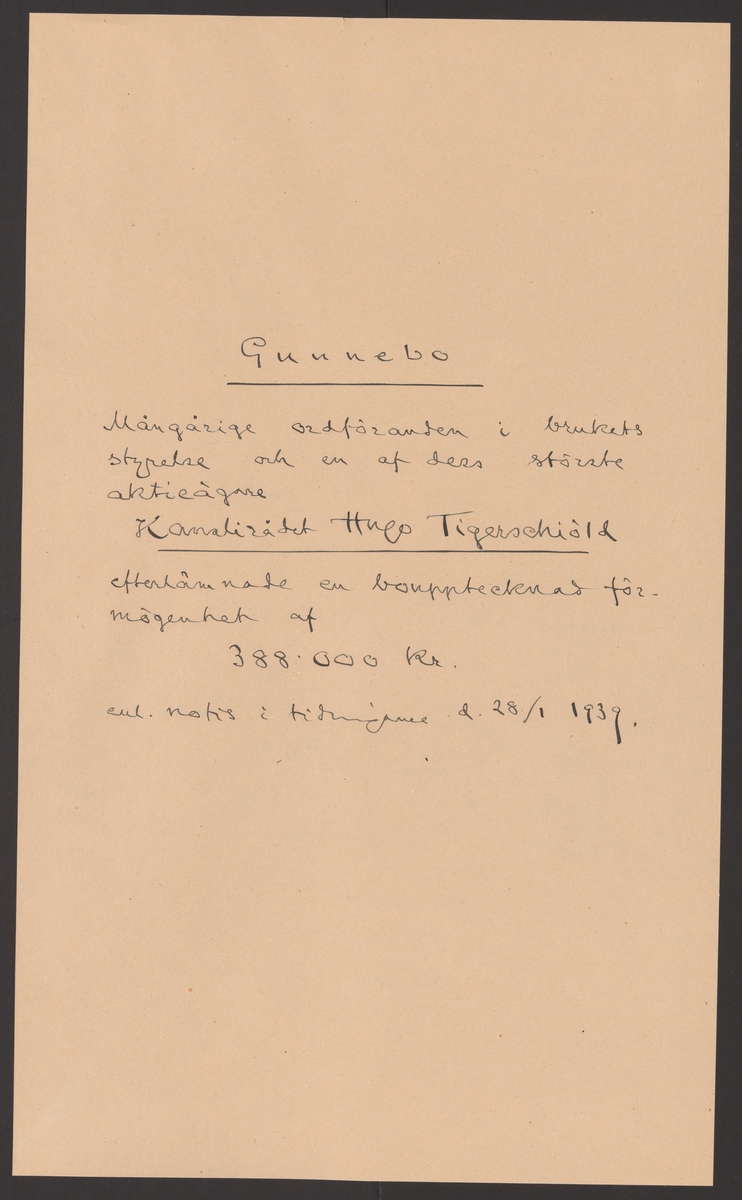 Gunnebo
Mångårige ordföranden i brukets
styrelse och en af dess största
aktieägare
Kanslirådet Hugo Tigerschiöld
efterlämnade en boupptecknad för-
mögenhet af
388.000 Kr.
enl. notis i tidningarne d. 28/1 1939.